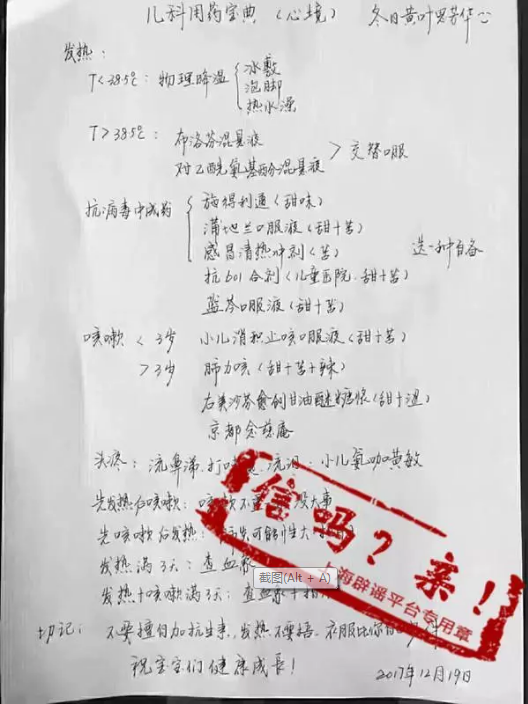 儿科用药宝典（心境） 冬日黄叶
发热：
T<38.5℃：物理降温 冰敷
泡脚
热水澡
T>38.5℃：布洛芬混悬液
对乙酰氨基酚混悬液 > 交替口服
抗病毒中成药 施得利通（甜味）
蒲地兰口服液（甜+苦）
感冒清热冲剂（苦） 选一种自备
抗601合剂（儿童医院，甜+苦）
蓝芩口服液（甜+苦）
咳嗽 < 3岁 小儿消积止咳口服液（甜+苦）
>3岁 肺力咳（甜+苦+辣）
右美沙芬愈创甘油醚糖浆（甜+涩）
京都念慈庵
头疼：流鼻涕，打 流泪：小儿氨咖黄敏
先发热后咳嗽：咳嗽不 没大事
先咳嗽后发热：肺炎可能性大
发热满3天：查血象
发热+咳嗽满3天：查血象+
切记：不要擅自加抗生素，发热不要捂，衣服比你
祝宝宝们健康成长！ 2017年12月19日
信吗？亲！
上海辟谣平台专用章
截图(Alt + A)